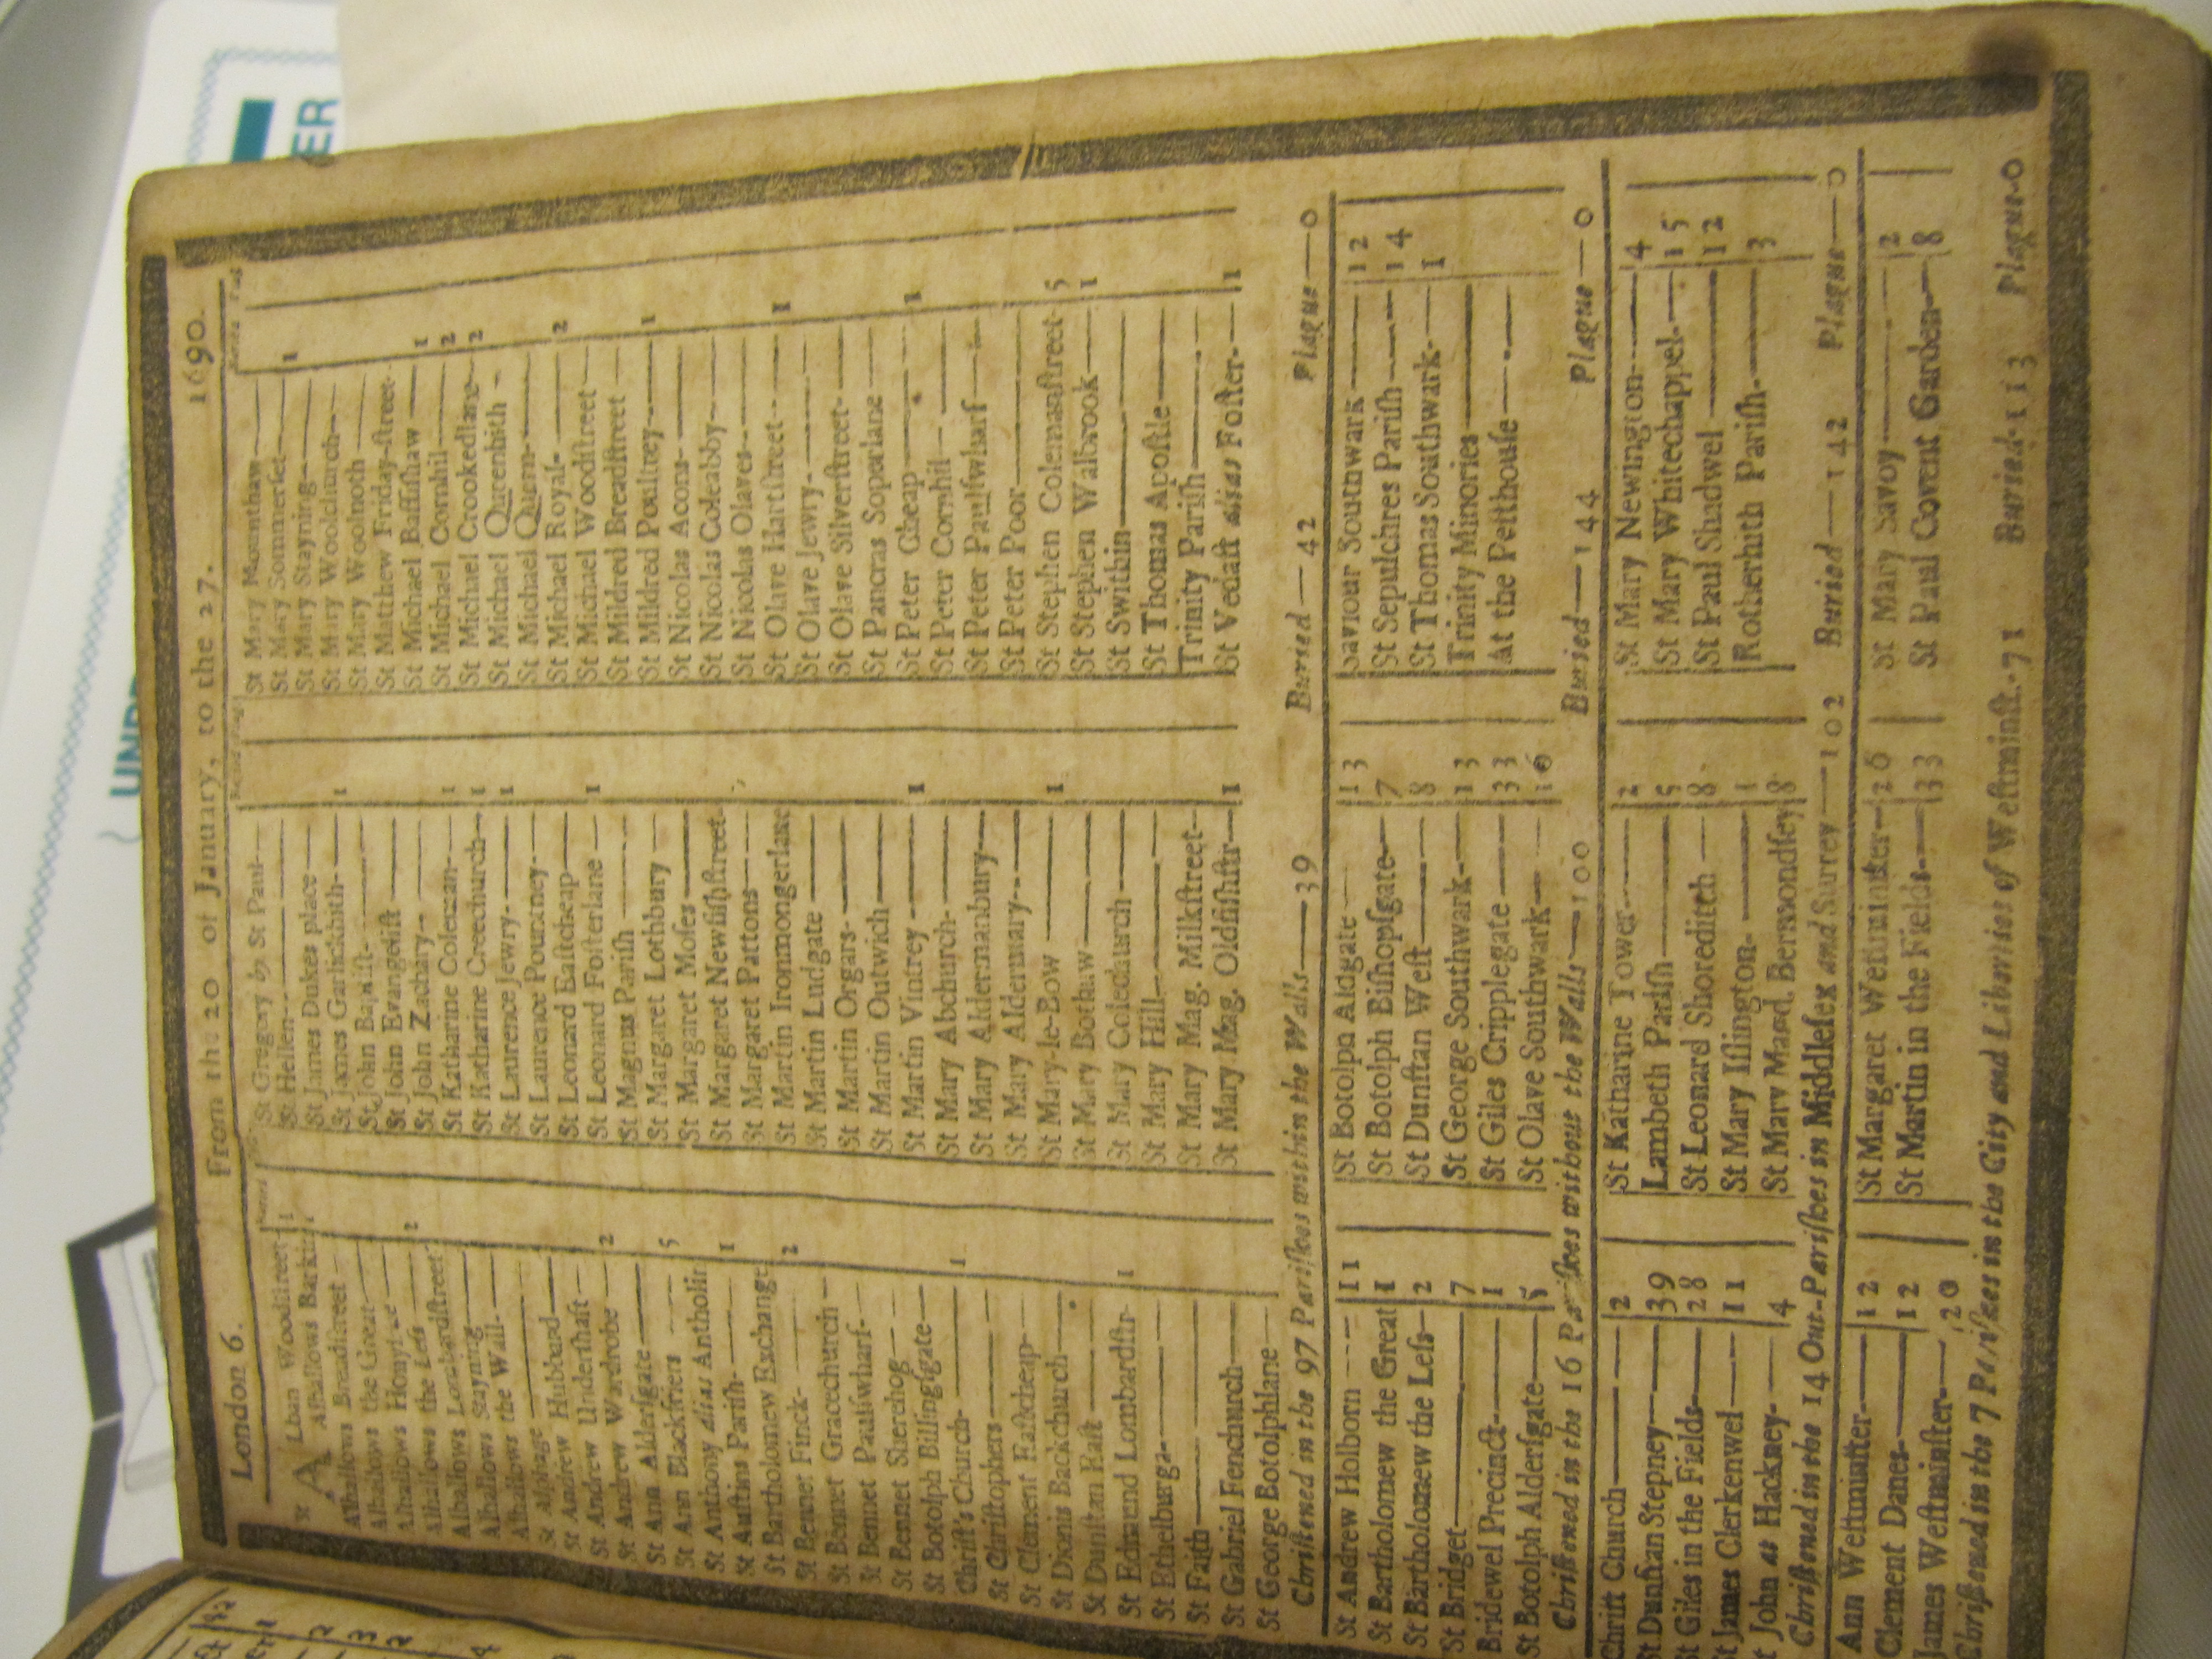 London 6. From the 20 of January, to the 27. 1690.
ALban Woodſtreet 1
Alhallows Barkin
Alhallows Breadſtreet
Alhallows the Great
Alhallows Honyl
Alhallows the Leſs 2
Alhallows Lombardſtreet
Alhallows Stayning
Alhallows the Wall
St Alphage
St Andrew Hubbard
St Andrew Underſhaft
St Andrew Wardrobe 2
St Ann Alderſgate
St Ann Blackfriers 5
St Anthony alias Antholin
St Auſtins Pariſh 1
St Bartholomew Exchange
St Bennet Finck 2
St Bennet Gracechurch
St Bennet Paulſwharf
St Bennet Sherehog
St Botolph Billingſgate
Chriſt's Church 1
St Chriſtophers
St Clement Eaſtcheap
St Dionis Backchurch
St Dunſtan Eaſt
St Edmund Lombardſtr 1
St Ethelburga
St Faith
St Gabriel Fenchurch
St George Botolphlane
St Gregory by St Paul
St Hellen
St James Dukes place
St James Garlickhith 1
St John Baptiſt
St John Evangeliſt
St John Zachary
St Katharine Coleman 1
St Katharine Creechurch 1
St Laurence Jewry 1
St Laurence Pountney
St Leonard Eaſtcheap
St Leonard Foſterlane 1
St Magnus Pariſh
St Margaret Lothbury
St Margaret Moſes
St Margaret Newfiſhſtreet
St Margaret Pattons
St Martin Ironmongerlane
St Martin Ludgate
St Martin Orgars
St Martin Outwich
St Martin Vintrey 1
St Mary Abchurch
St Mary Aldermanbury
St Mary Aldermary
St Mary-le-Bow 1
St Mary Bothaw
St Mary Colechurch
St Mary Hill
St Mary Mag. Milkſtreet
St Mary Mag. Oldfiſhſtr 1
St Mary Mounthaw
St Mary Sommerſet 1
St Mary Stayning
St Mary Woolchurch
St Mary Woolnoth
St Matthew Friday-ſtreet
St Michael Baſſiſhaw 1
St Michael Cornhil 2
St Michael Crookedlane 2
St Michael Queenhith
St Michael Quern
St Michael Royal 2
St Michael Woodſtreet
St Mildred Breadſtreet
St Mildred Poultrey 1
St Nicolas Acons
St Nicolas Coleabby
St Nicolas Olaves
St Olave Hartſtreet 1
St Olave Jewry
St Olave Silverſtreet
St Pancras Soperlane
St Peter Cheap 1
St Peter Cornhil
St Peter Paulſwharf
St Peter Poor
St Stephen Colemanſtreet 5
St Stephen Walbrook 1
St Swithin
St Thomas Apoſtle
Trinity Pariſh
St Vedaſt alias Foſter 1
Chriſtened in the 97 Pariſhes within the Walls 39 Buried 42 Plague 0
St Andrew Holborn 11
St Bartholomew the Great 1
St Bartholomew the Leſs 2
St Bridget 7
Bridewel Precinct 1
St Botolph Alderſgate 5
St Botolph Aldgate 13
St Botolph Biſhopſgate 7
St Dunſtan Weſt 8
St George Southwark 13
St Giles Cripplegate 33
St Olave Southwark 16
Saviour Southwark 12
St Sepulchres Pariſh 14
St Thomas Southwark 1
Trinity Minories
At the Peſthouſe
Chriſtened in the 16 Pariſhes without the Walls 100 Buried 144 Plague 0
Chriſt Church 2
St Dunſtan Stepney 39
St Giles in the Fields 28
St James Clerkenwel 11
St John at Hackney 4
St Katharine Tower 2
Lambeth Pariſh 5
St Leonard Shoreditch 8
St Mary Iſlington 1
St Mary Magd. Bermondſey 8
St Mary Newington 4
St Mary Whitechappel 15
St Paul Shadwel 12
Rotherhith Pariſh 3
Chriſtened in the 14 Out-Pariſhes in Middleſex and Surrey 102 Buried 142 Plague 0
Ann Weſtminſter 12
Clement Danes 12
James Weſtminſter 20
St Margaret Weſtminſter 26
St Martin in the Fields 33
St Mary Savoy 2
St Paul Covent Garden 8
Chriſtened in the 7 Pariſhes in the City and Liberties of Weſtminſt. 71 Buried 113 Plague 0